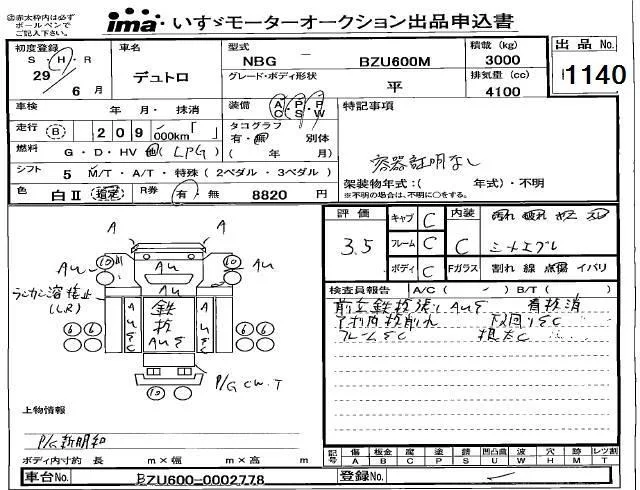 ②赤太枠内は必ず
ボールペンで
ご記入下さい。
ima いすゞモーターオークション出品申込書
初度登録 S・H・R 29年 6月
車名 デュトロ
型式 NBG － BZU600M
グレード・ボディ形状 平
積載 (kg) 3000
排気量 (cc) 4100
出品 No. 1140
車検 年・月・抹消
装備 AC・PS・PW
特記事項
走行 B 209 000km「 」
タコグラフ 有・無 別体
( 年 月)
燃料 G・D・HV 他(LPG)
容器証明なし
シフト 5 M/T・A/T・特殊 (2ペダル・3ペダル)
架装物年式:( 年式)・不明
※不明の場合は、不明に○をする。
色 白Ⅱ 指定 R券 有・無 8820 円
評価 3.5
キャブ C
フレーム C
ボディ C
内装 C
汚れ 破れ ヤエ スレ
Fガラス 割れ 線 点傷 イバリ
A A
Au Au Au
10 10
(LR)
鉄板
AuΣC
AuΣ
6 6 6 6
P/G CW.T
10
検査員報告 A/C( ) B/T( )
前立鉄板張り AuΣ 看板消
下回りΣC
フレームΣC
上物情報
P/G新明和
ボディ内寸約 長 m×幅 m×高 m
記号 傷A 板金B 腐C 塗P 錆S 凹凸曲U 波W 穴H 跡M レンズ割T
車台No. BZU600-0002778
登録No.